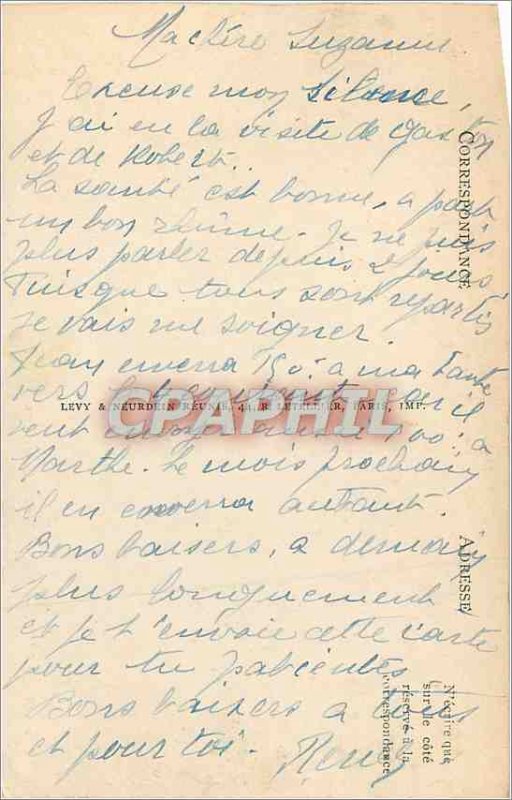 Ma chère Suzanne.
Excuse mon silence,
j'ai eu la visite de Gaston
et de Robert.
La santé est bonne, a part
un bon rhûme. Je ne puis
plus parler depuis 2 jours
Puisque tous sont repartis
je vais me soigner.
Jean enverra 150. a ma tante
vers le
LEVY & NEURDEIN RÉUNIS, 44, R. LETELLIER, PARIS, IMP.
CPARAPHIL
il
100. a
Marthe. Le mois prochain
il en enverra autant.
Bons baisers, a demain
plus longuement
et je t'envoie cette carte
pour tu patientes
Bons baisers a tous
et pour toi. Renée
CORRESPONDANCE
ADRESSE
N'écrire que
sur le côté
réservé à la
correspondance